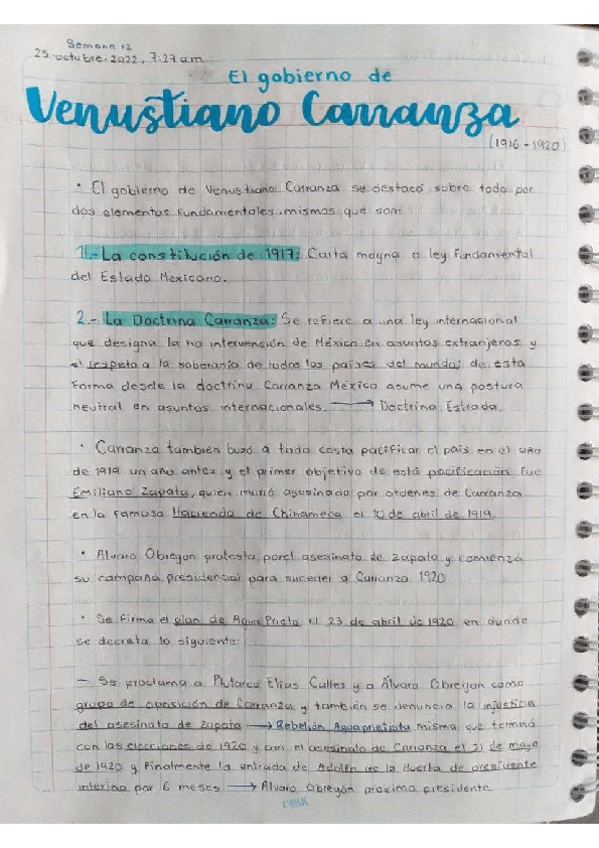 Semana 12
25-octubre-2022, 7:27 am
El gobierno de
Venustiano Carranza
(1916 - 1920)
• El gobierno de Venustiano Carranza se destacó sobre todo por
dos elementos fundamentales, mismos que son:
1.- La constitución de 1917: Carta magna o ley fundamental
del Estado Mexicano.
2.- La Doctrina Carranza: Se refiere a una ley internacional
que designa la no intervención de México en asuntos extranjeros y
el respeto a la soberanía de todos los países del mundo; de esta
forma desde la doctrina Carranza México asume una postura
neutral en asuntos internacionales. → Doctrina Estrada.
• Carranza también buscó a toda costa pacificar el país en el año
de 1919 un año antes y el primer objetivo de está pacificación fue
Emiliano Zapata, quien murió asesinado por ordenes de Carranza
en la famosa Hacienda de Chinameca el 10 de abril de 1919.
• Alvaro Obregon protesta por el asesinato de Zapata y comienza
su campaña presidencial para suceder a Carranza 1920
• Se firma el plan de Agua Prieta el 23 de abril de 1920 en donde
se decreta lo siguiente:
— Se proclama a Plutarco Elías Calles y a Álvaro Obregon como
grupo de oposición de Carranza y también se denuncia la injusticia
del asesinato de Zapata → Rebelión Aguaprietista misma que terminó
con las elecciones de 1920 y con el asesinato de Carranza el 21 de mayo
de 1920 y finalmente la entrada de Adolfo de la Huerta de presidente
interino por 6 meses → Alvaro Obregón proximo presidente.